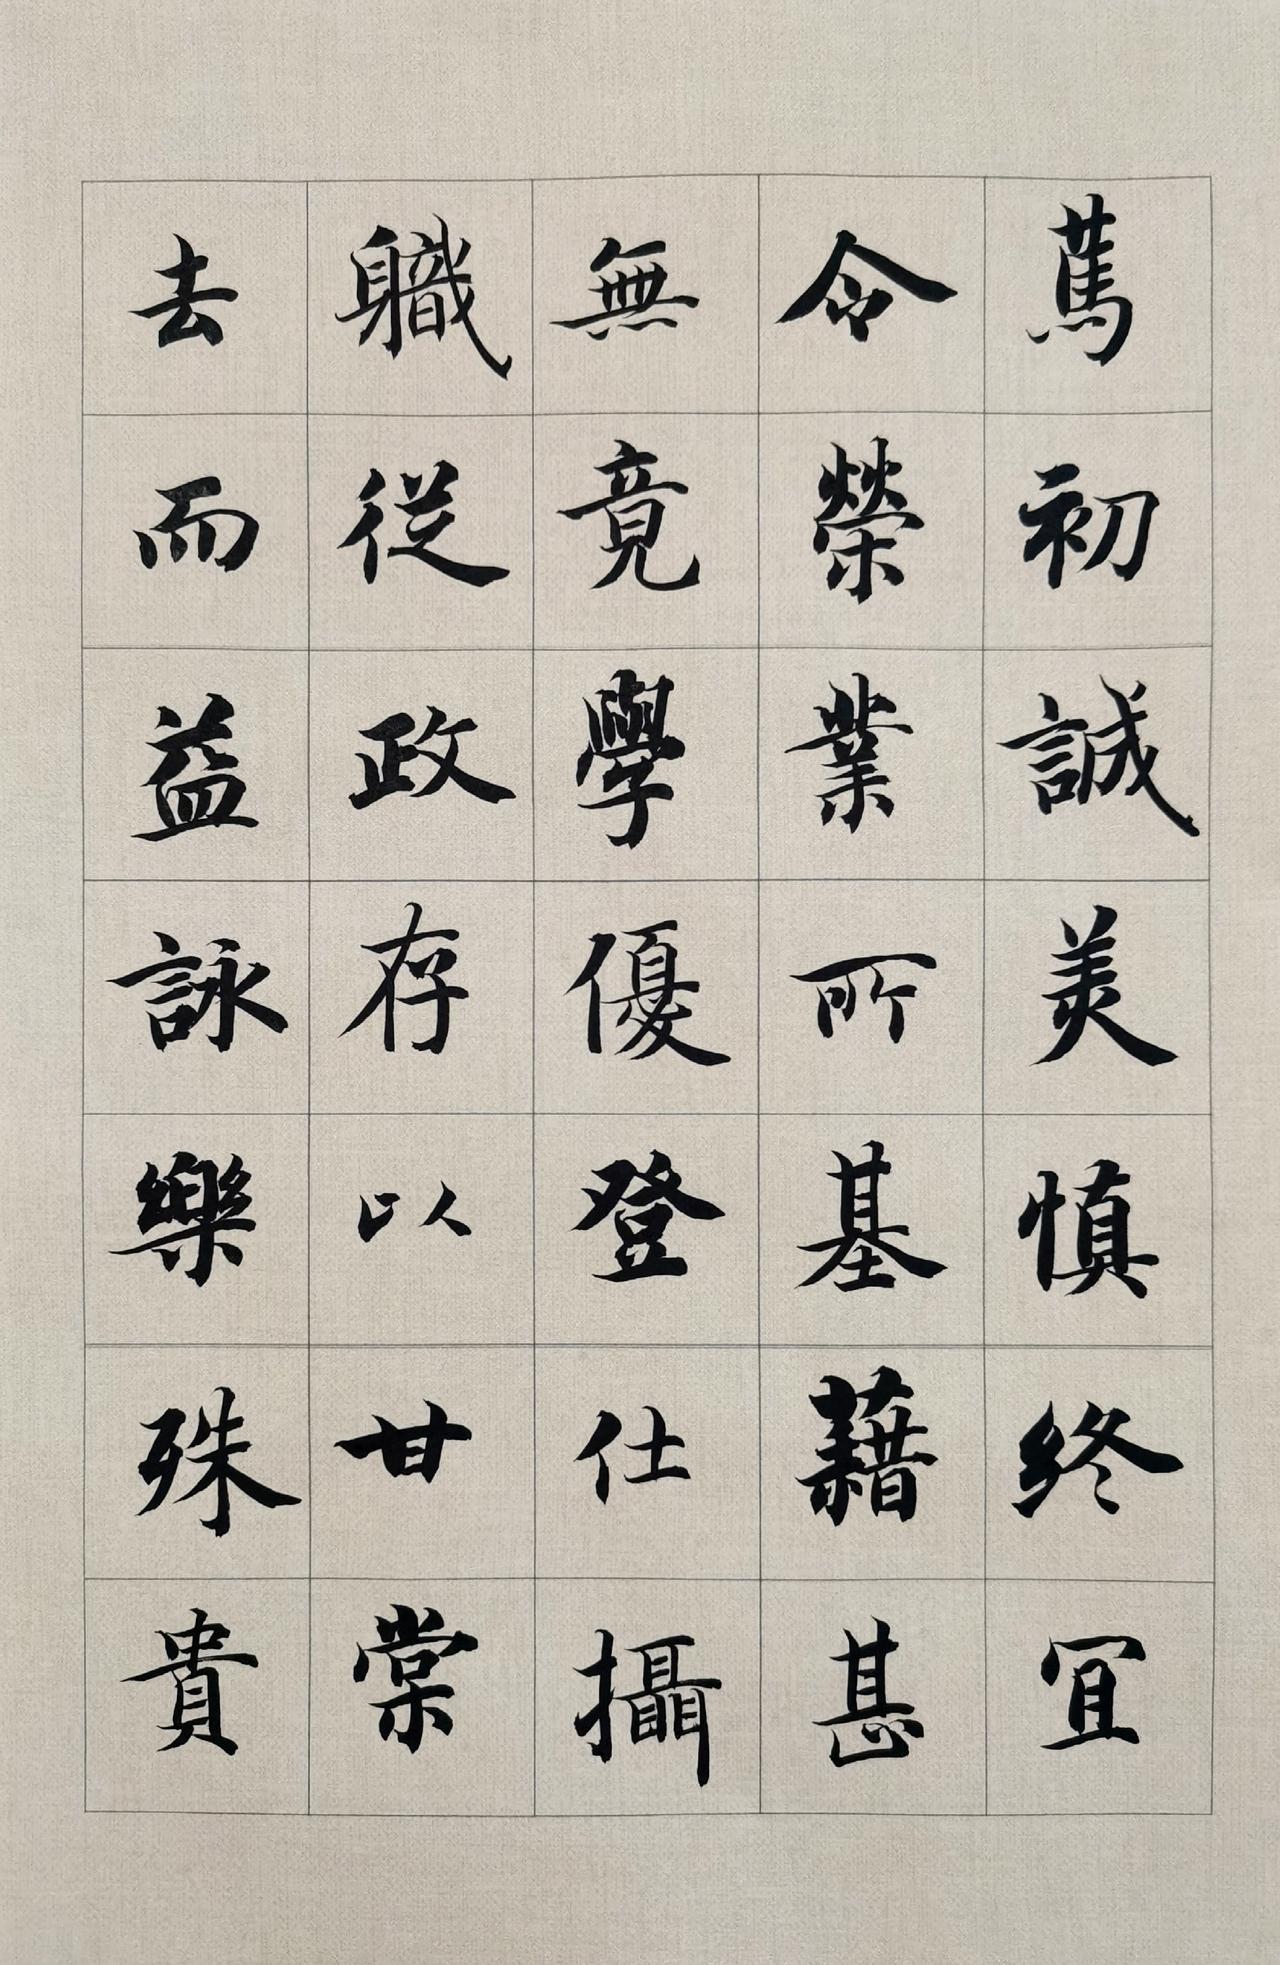 篤初誠美慎終宜
令榮業所基藉甚
無竟學優登仕攝
職從政存以甘棠
去而益詠樂殊貴